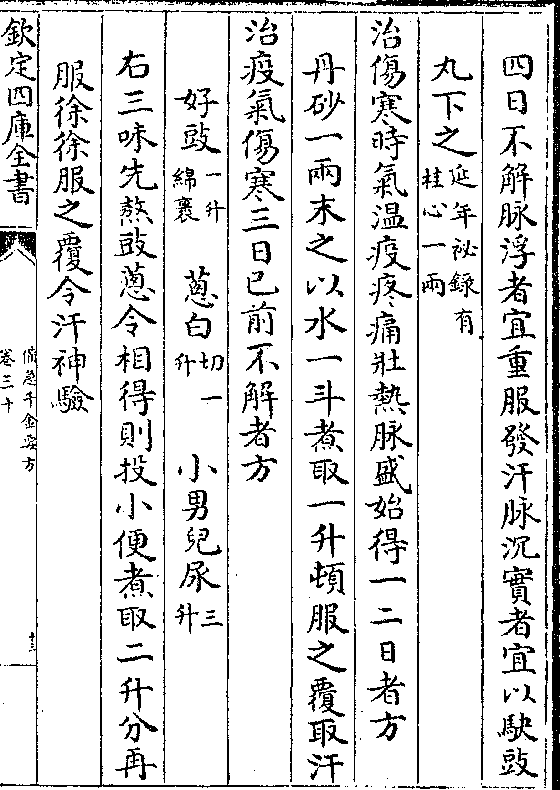 四日不解脉浮者宜重服發汗脉沉實者宜以駃豉
丸下之延年祕録有桂心一兩
治傷寒時氣温疫疼痛壯熱脉盛始得一二日者方
丹砂一兩末之以水一斗煮取一升頓服之覆取汗
治疫氣傷寒三日已前不解者方
好豉一升綿裹 葱白切一升 小男兒尿三升
右三味先熬豉葱令相得則投小便煮取二升分再
服徐徐服之覆令汗神驗
欽定四庫全書
備急千金要方
卷三十
十三